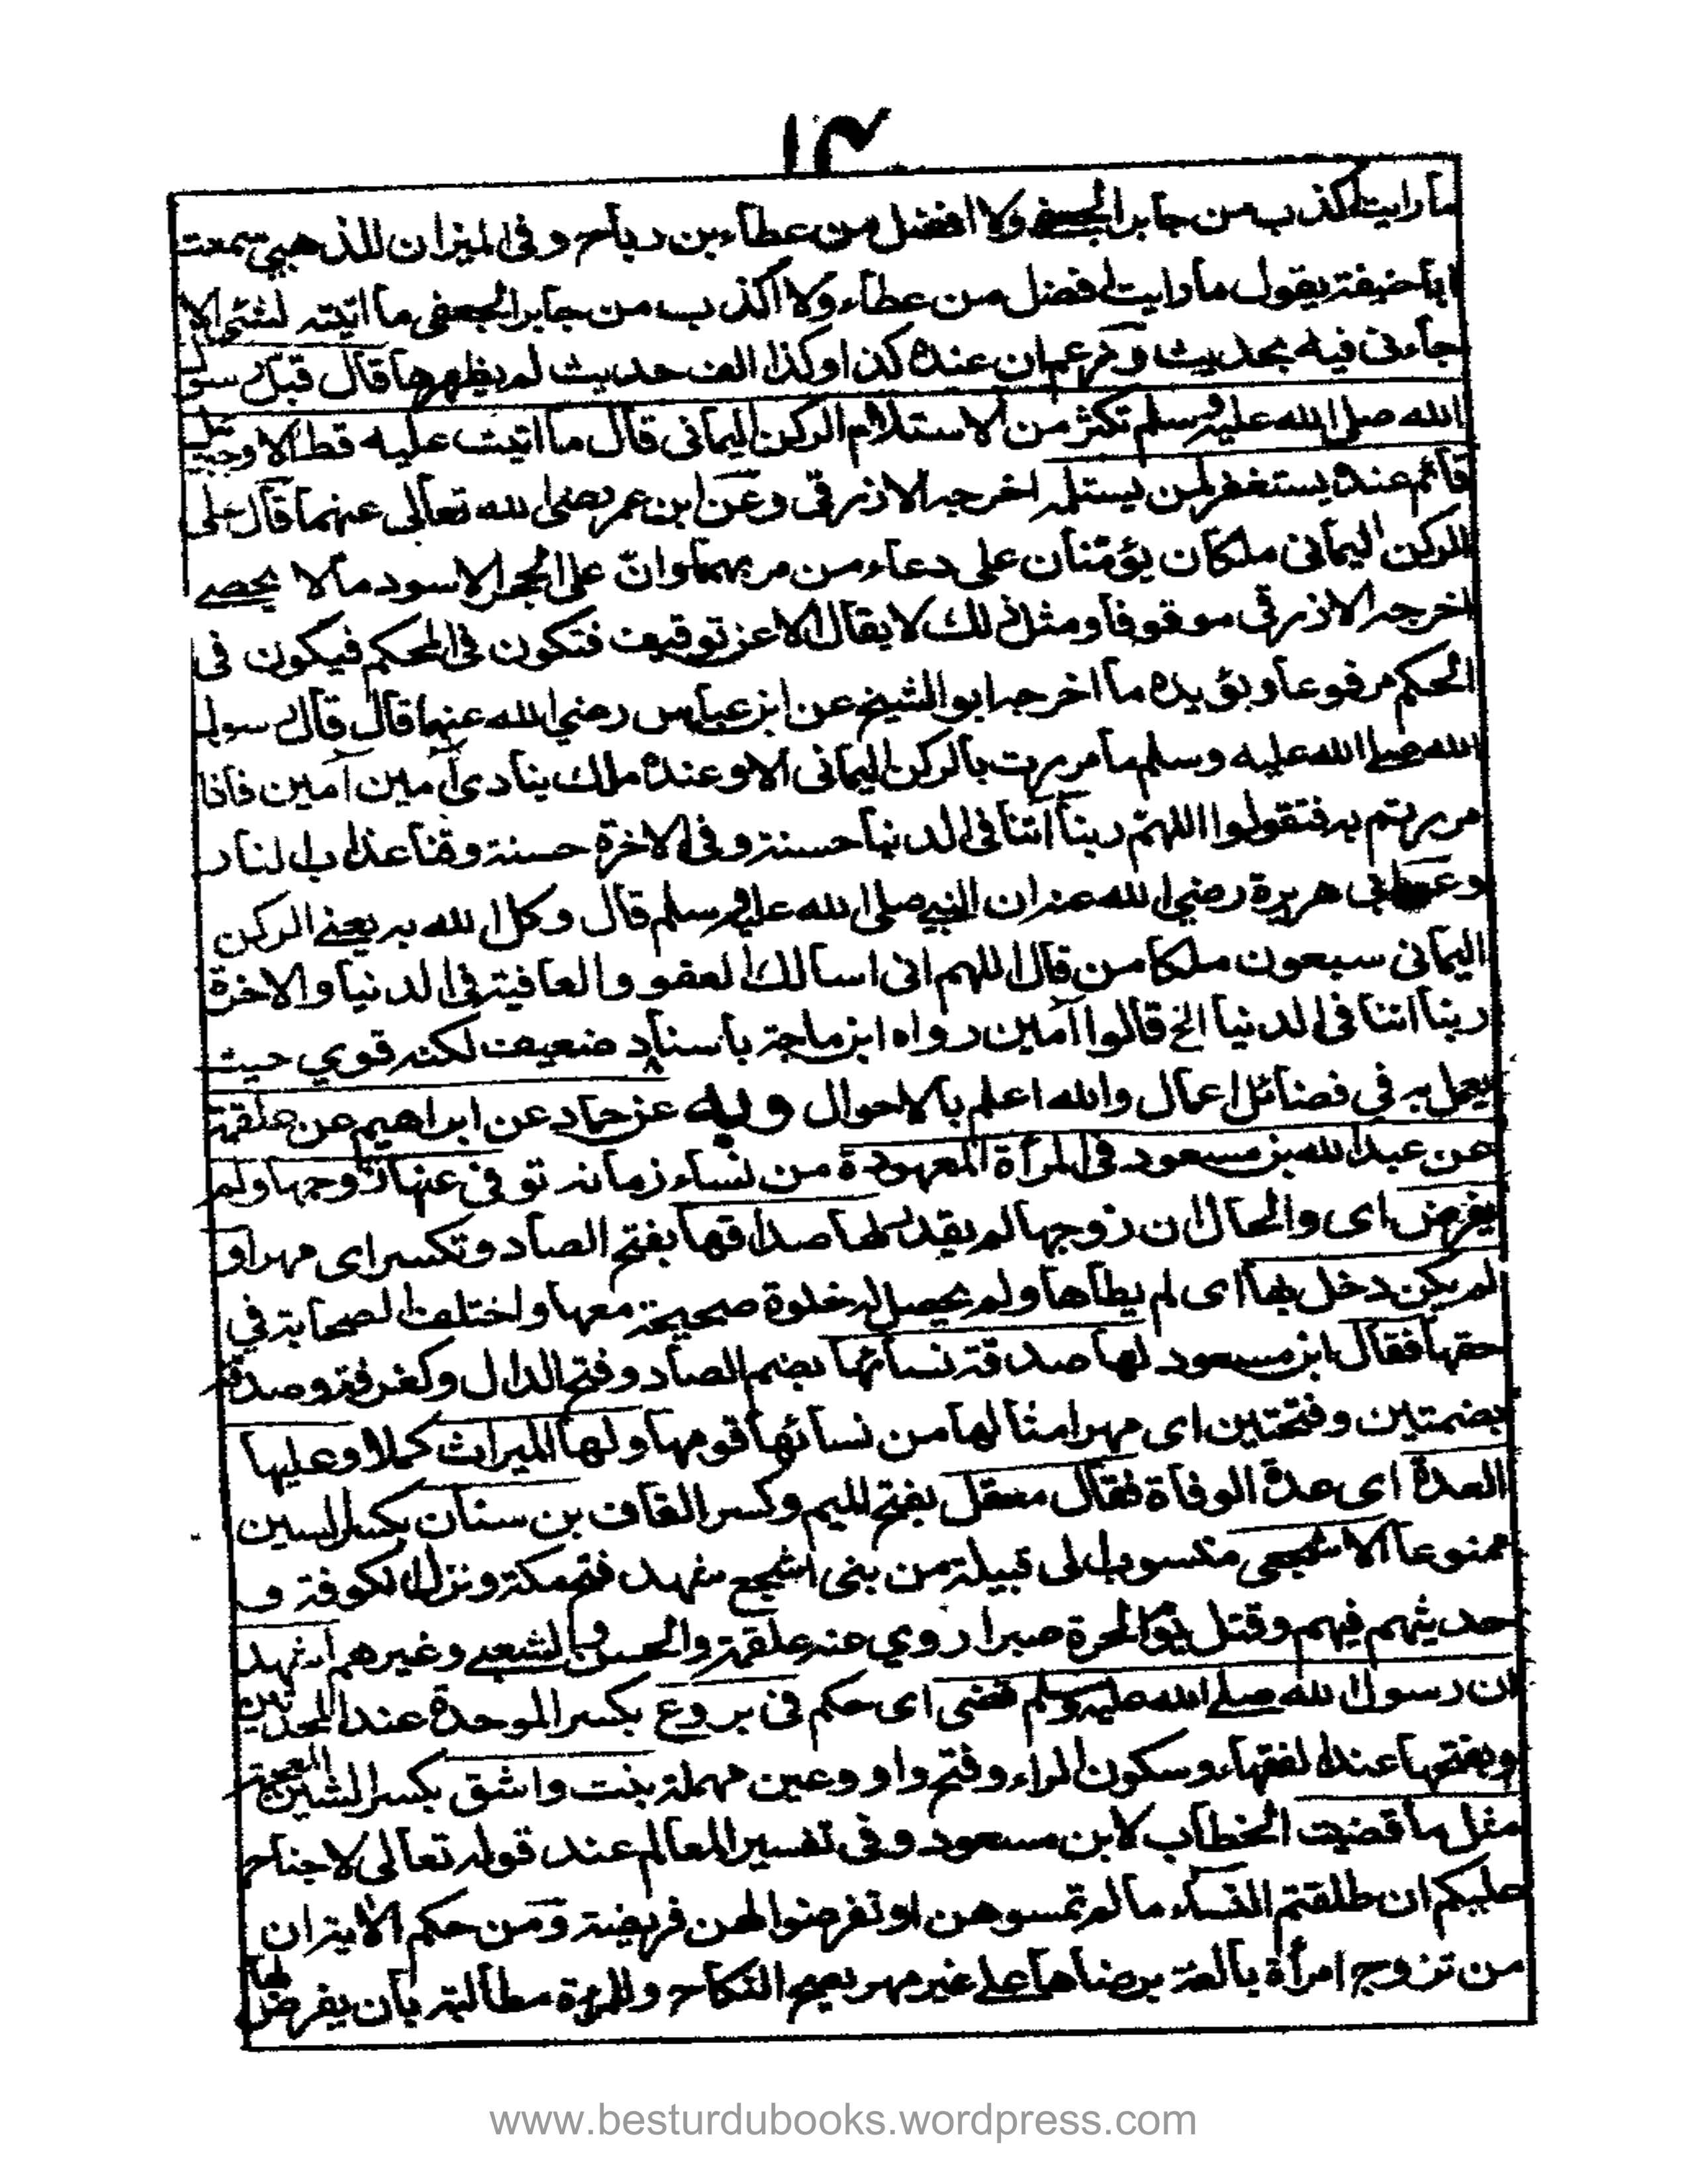 ١٤
ما رايت اكذب من جابر الجعفي ولا افضل من عطاء بن رباح وفى الميزان للذهبي سمعت
ابا حنيفة يقول ما رايت افضل من عطاء ولا اكذب من جابر الجعفى ما اتيته لشئ الا
جاءنى فيه بحديث وزعم ان عنده كذا وكذا الف حديث لم يظهرها قال قيل رسول
الله صلى الله عليه وسلم تكثر من الاستلام الركن اليمانى قال ما اتيت عليه قط الا وجبريل
قائم عنده يستغفر لمن يستلمه اخرجه الازرقى وعن ابن عمر رضى الله تعالى عنهما قال على
الركن اليمانى ملكان يؤمنان على دعاء من مر بهما وان على الحجر الاسود مالا يحصے
اخرجه الازرقى موقوفا ومثل ذلك لا يقال الا عن توقيف فتكون فى المحكم فيكون فى
الحكم مرفوعا ويؤيده ما اخرجه ابو الشيخ عن ابن عباس رضي الله عنهما قال قال رسول
الله صلے الله عليه وسلم ما مررت بالركن اليمانى الا وعنده ملك ينادى آمين آمين فاذا
مررتم به فتقولوا اللهم ربنا اتنا فى الدنيا حسنة وفى الاخرة حسنة وقنا عذاب النار
وعن ابى هريرة رضي الله عنه ان النبي صلى الله عليه وسلم قال وكل الله به يعنے الركن
اليمانى سبعون ملكا من قال اللهم انى اسالك العفو والعافية فى الدنيا والاخرة
ربنا اتنا فى الدنيا الخ قالوا آمين رواه ابن ماجة باسناد ضعيف لكنه قوي حيث
يعمل به في فضائل اعمال والله اعلم بالاحوال وبه عن حماد عن ابراهيم عن علقمة
عن عبد الله بن مسعود فى المرأة المعهودة من نساء زمانه توفى عنها زوجها ولم
يفرض اى والحال ان زوجها لم يقدر لها صداقها بفتح الصاد وتكسر اى مهرا و
لم يكن دخل بها اى لم يطأها ولم يحصل له خلوة صحيحة معها واختلف الصحابة في
حقها فقال ابن مسعود لها صدقة نسائها بضم الصاد وفتح الدال وكغرفة وصدقة
بضمتين وفتحتين اى مهر امثالها من نسائها قومها ولها الميراث كملا وعليها
العدة اى عدة الوفاة فقال معقل بفتح الميم وكسر القاف بن سنان بكسر السين
ممنوعا الاشجعى منسوب الى قبيلة من بنى اشجع شهد فتح مكة ونزل الكوفة و
حديثهم فيهم وقتل يوم الحرة صبرا روي عنه علقمة والحسن والشعبے وغيرهم اشهد
ان رسول الله صلے الله عليه وسلم قضى اى حكم فى بروع بكسر الموحدة عند المحدثين
وبفتحها عند الفقهاء وسكون الراء وفتح واو وعين مهملة بنت واشق بكسر الشين المعجمة
مثل ما قضيت الخطاب لابن مسعود وفى تفسير المعالم عند قوله تعالى لا جناح
عليكم ان طلقتم النساء ما لم تمسوهن او تفرضوا لهن فريضة ومن حكم الاية ان
من تزوج امرأة بالغة برضاها على غير مهر يصح النكاح وللمرءة مطالبة بان يفرض لها
www.besturdubooks.wordpress.com